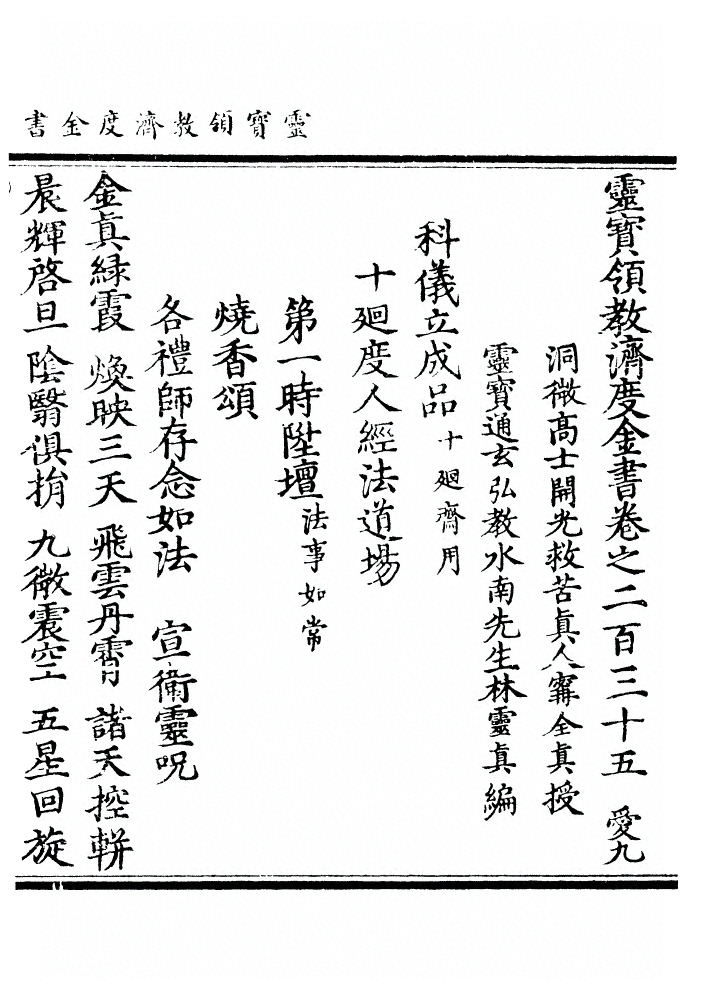 靈寶領教濟度金書
靈寶領教濟度金書卷之二百三十五 愛九
洞微高士開光救苦真人寗全真授
靈寶通玄弘教水南先生林靈真編
科儀立成品十廻齋用
十廻度人經法道場
第一時陞壇法事如常
燒香頌
各禮師存念如法 宣衛靈呪
金真緑霞 煥映三天 飛雲丹霄 諸天控軿
晨輝啓旦 陰翳俱捐 九微震空 五星回旋